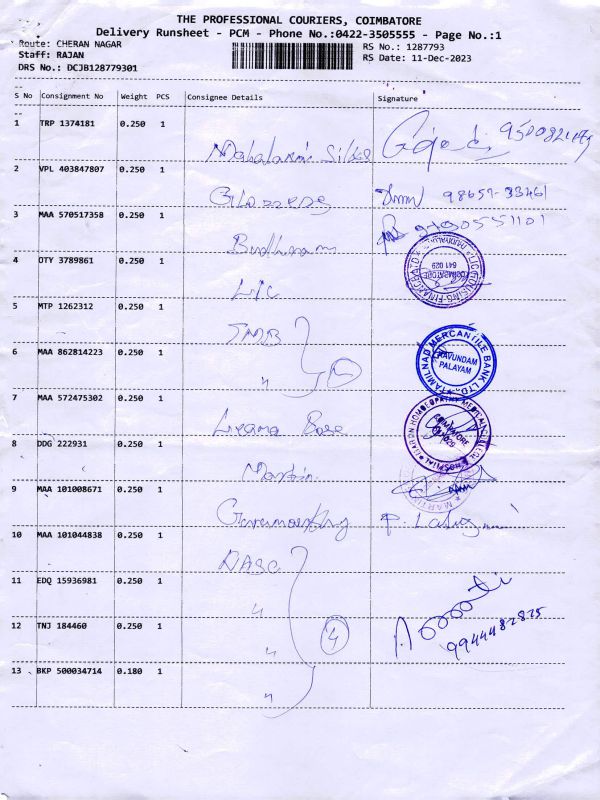 THE PROFESSIONAL COURIERS, COIMBATORE
Delivery Runsheet - PCM - Phone No.:0422-3505555 - Page No.:1
Route: CHERAN NAGAR RS No.: 1287793
Staff: RAJAN RS Date: 11-Dec-2023
DRS No.: DCJB128779301
S No Consignment No Weight PCS Consignee Details Signature
1 TRP 1374181 0.250 1
Mahalaxmi Silks
2 VPL 403847807 0.250 1
98657-33461
3 MAA 570517358 0.250 1
4 OTY 3789861 0.250 1
LIC
LIC HOUSING FINANCE LTD
COIMBATORE
641 029
5 MTP 1262312 0.250 1
TMB
6 MAA 862814223 0.250 1
"
TAMILNAD MERCANTILE BANK LTD.,
KAVUNDAM
PALAYAM
7 MAA 572475302 0.250 1
HOMOEOPATHY MEDICAL COLLEGE
HOSPITAL
COIMBATORE
8 DDG 222931 0.250 1
Martin
MARTIN
9 MAA 101008671 0.250 1
10 MAA 101044838 0.250 1
NASC
11 EDQ 15936981 0.250 1
"
12 TNJ 184460 0.250 1
" 4
13 BKP 500034714 0.180 1
"